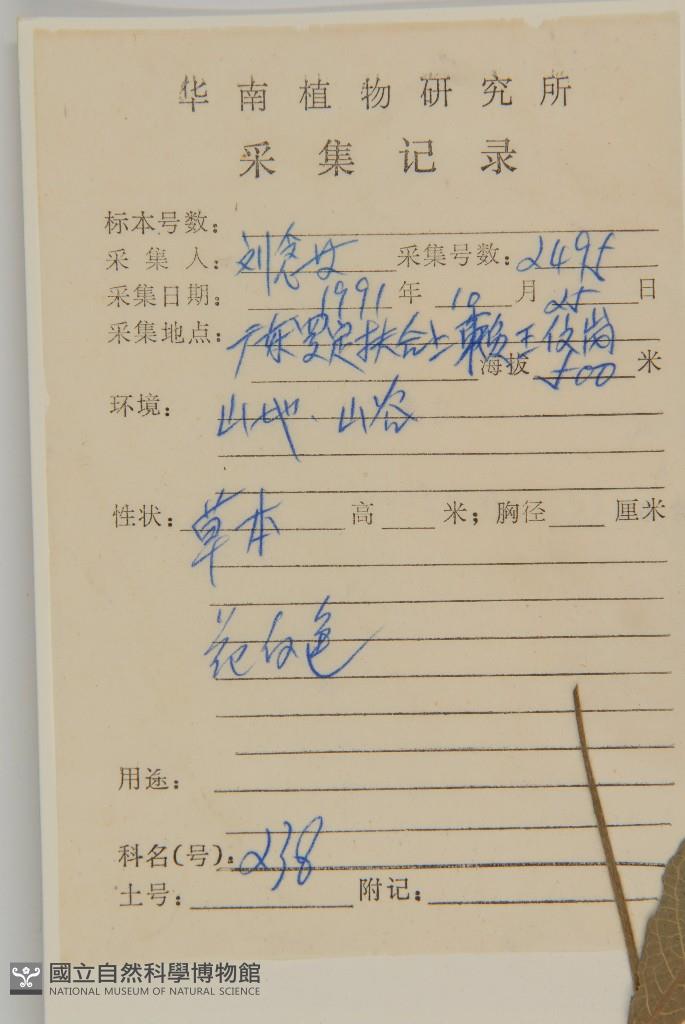 华南植物研究所
采集记录
标本号数：
采集人：刘念 采集号数：2495
采集日期：1991年10月25日
采集地点：广东罗定扶合上赖
海拔500米
环境：山地、山谷
性状：草本 高 米；胸径 厘米
花白色
用途：
科名(号)：238
土号： 附记：
國立自然科學博物館
NATIONAL MUSEUM OF NATURAL SCIENCE